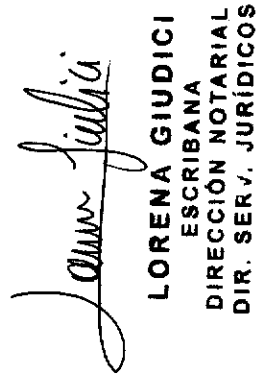 Lorena Giudici
LORENA GIUDICI
ESCRIBANA
DIRECCIÓN NOTARIAL
DIR. SERV. JURÍDICOS